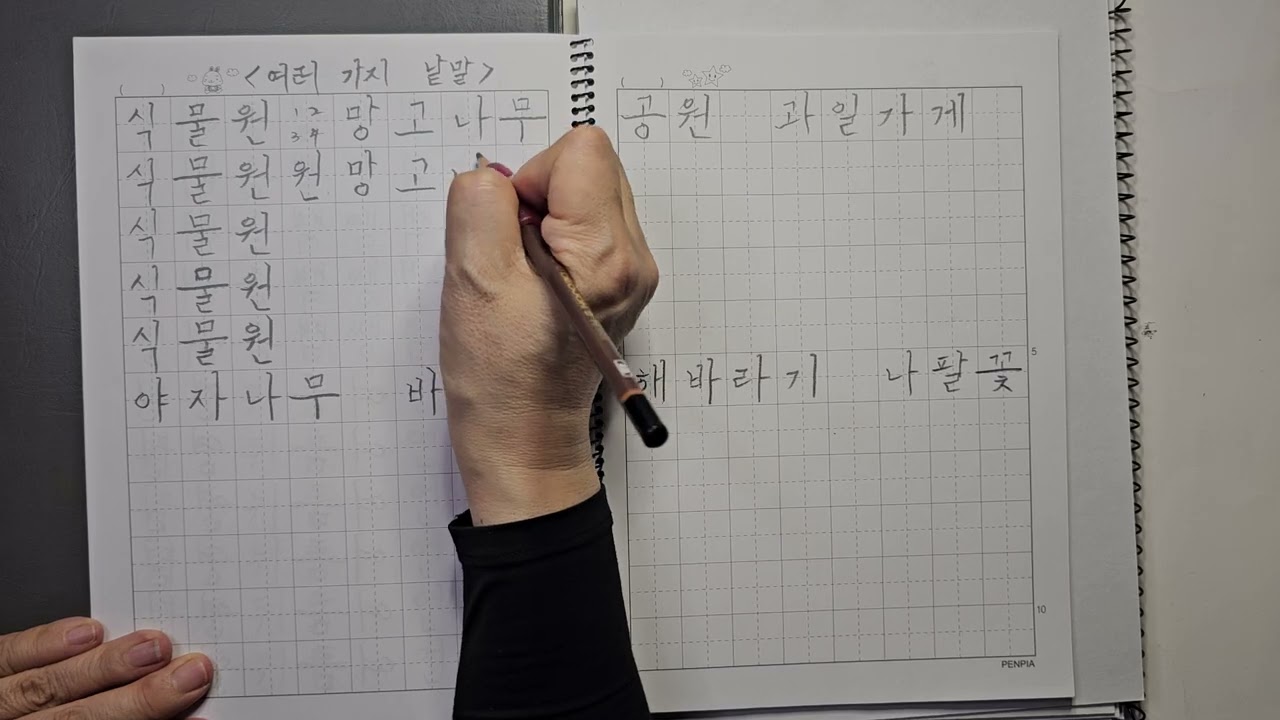 <여러 가지 낱말>
식물원 1 2 3 4 망고나무
식물원원망고
식물원
식물원
식물원
야자나무 바
공원 과일가게
5
해바라기 나팔꽃
10
PENPIA